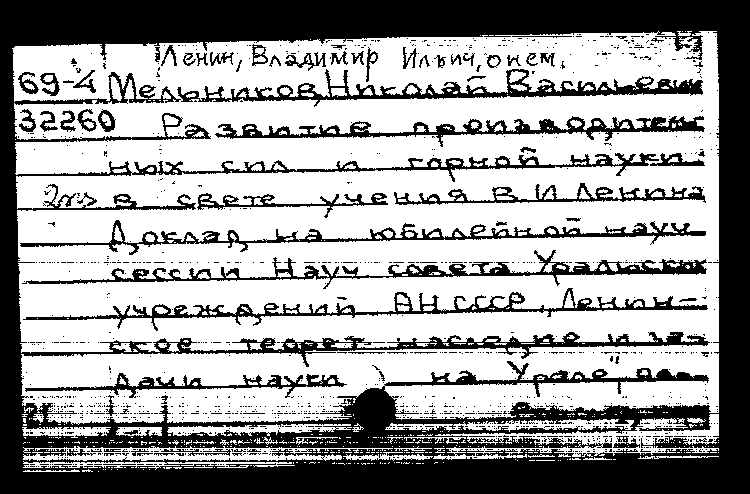 Ленин, Владимир Ильич, о нем.
69-4 Мельников, Николай Васильевич
32260 Развитие производитель
ных сил и горной науки
в свете учения В И Ленина
Доклад на юбилейной науч
сессии Науч совета Уральских
учреждений АН СССР „Ленин-
ское теорет наследие и за-
дачи науки на Урале",